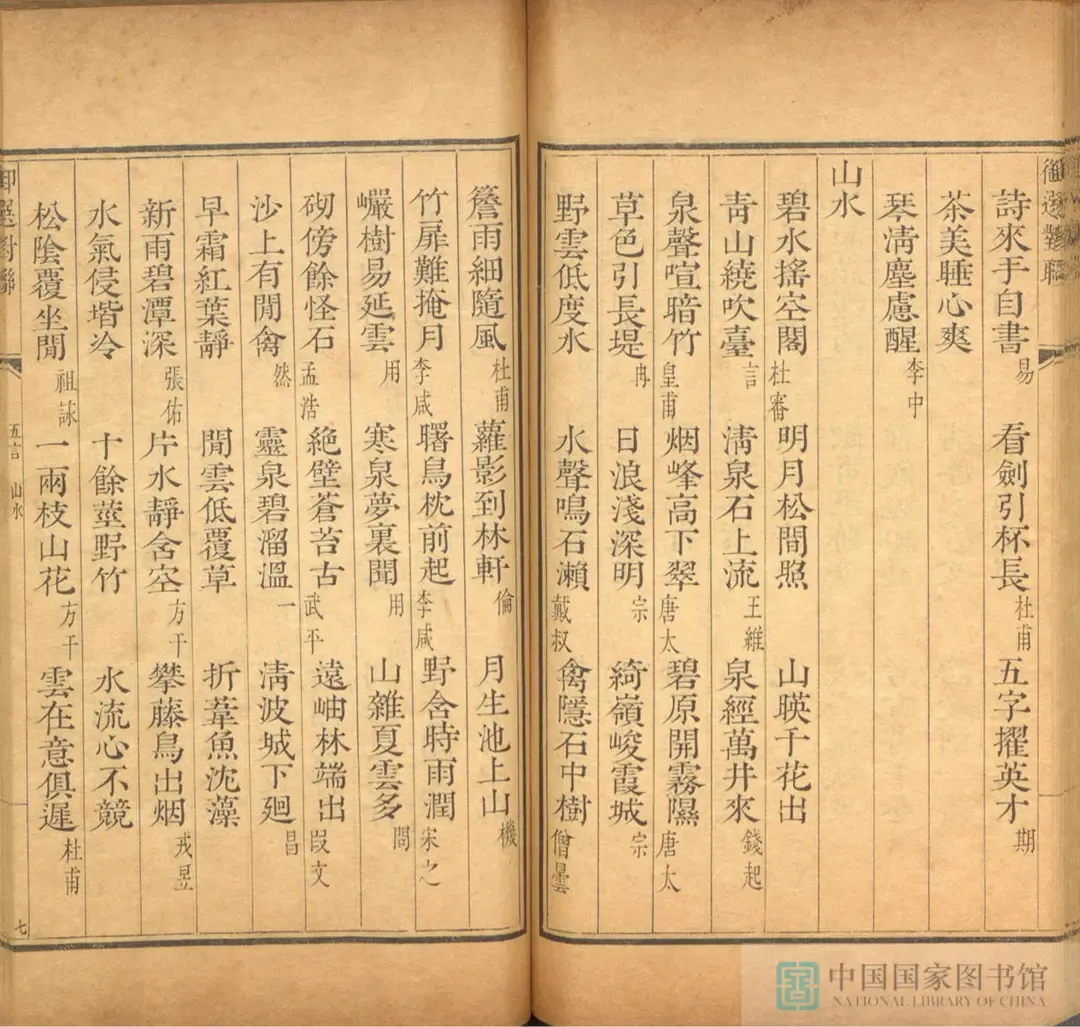 御選對聯
詩來手自書 易 看劍引杯長 杜甫 五字擢英才 期
茶美睡心爽
琴清塵慮醒 李中
山水
碧水搖空閣 杜審 明月松間照 山暎千花出
青山繞吹臺 言 清泉石上流 王維 泉經萬井來 錢起
泉聲喧暗竹 皇甫 烟峰高下翠 唐太 碧原開霧隰 唐太
草色引長堤 冉 日浪淺深明 宗 綺嶺峻霞城 宗
野雲低度水 水聲鳴石瀨 戴叔 禽隱石中樹 僧曇
簷雨細隨風 杜甫 蘿影到林軒 倫 月生池上山 機
竹扉難掩月 李咸 曙鳥枕前起 李咸 野含時雨潤 宋之
巗樹易延雲 用 寒泉夢裏聞 用 山雜夏雲多 問
砌傍餘怪石 孟浩 絶壁蒼苔古 武平 遠岫林端出 段文
沙上有閒禽 然 靈泉碧溜溫 一 清波城下廻 昌
早霜紅葉靜 閒雲低覆草 折葦魚沈藻
新雨碧潭深 張佑 片水靜含空 方干 攀藤鳥出烟 戎昱
水氣侵堦冷 十餘莖野竹 水流心不競
松陰覆坐閒 祖詠 一兩枝山花 方干 雲在意俱遲 杜甫
御選對聯 五言 山水 七
中国国家图书馆
NATIONAL LIBRARY OF CHINA